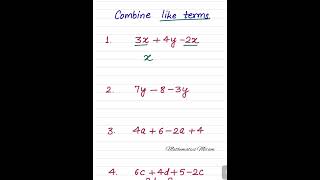 Combine like terms.
1. 3x + 4y - 2x
x
2. 7y - 8 - 3y
3. 4a + 6 - 2a + 4
Mathematics Mi
4. 6c + 4d + 5 - 2c